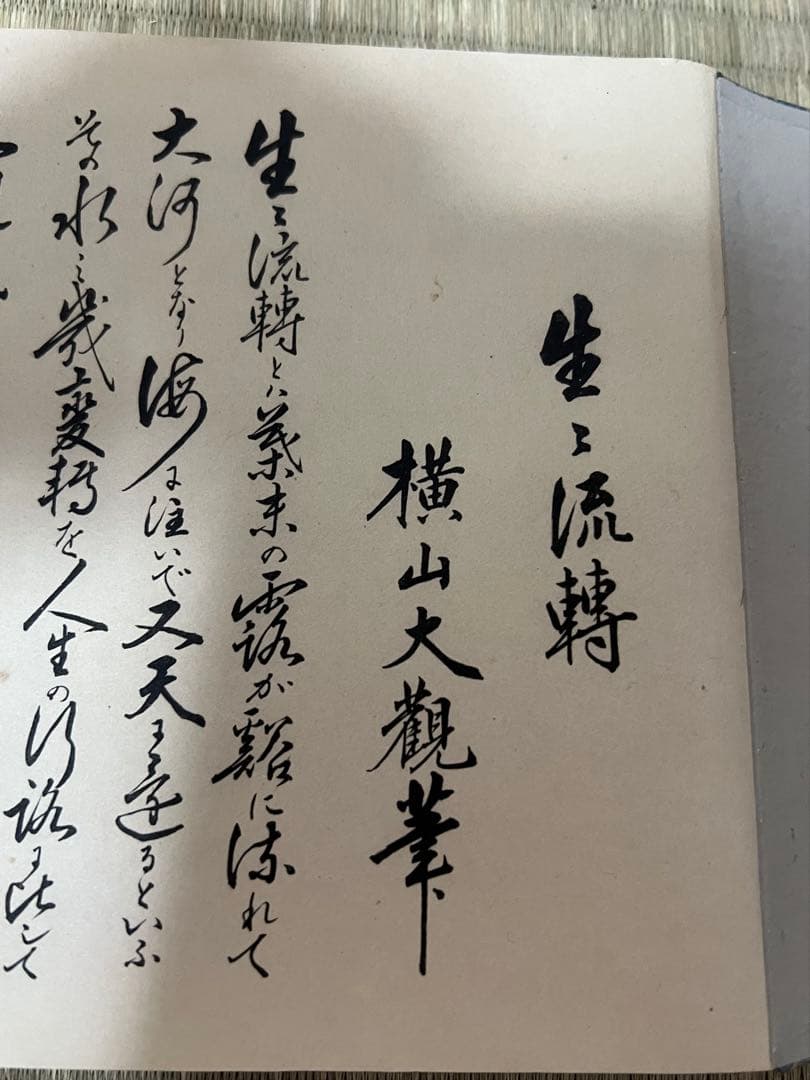 生々流轉
横山大觀筆
生々流轉とハ葉末の露が谿に流れて
大河となり海に注いで又天に還るといふ
其の水之幾变轉を人生の行路に比して